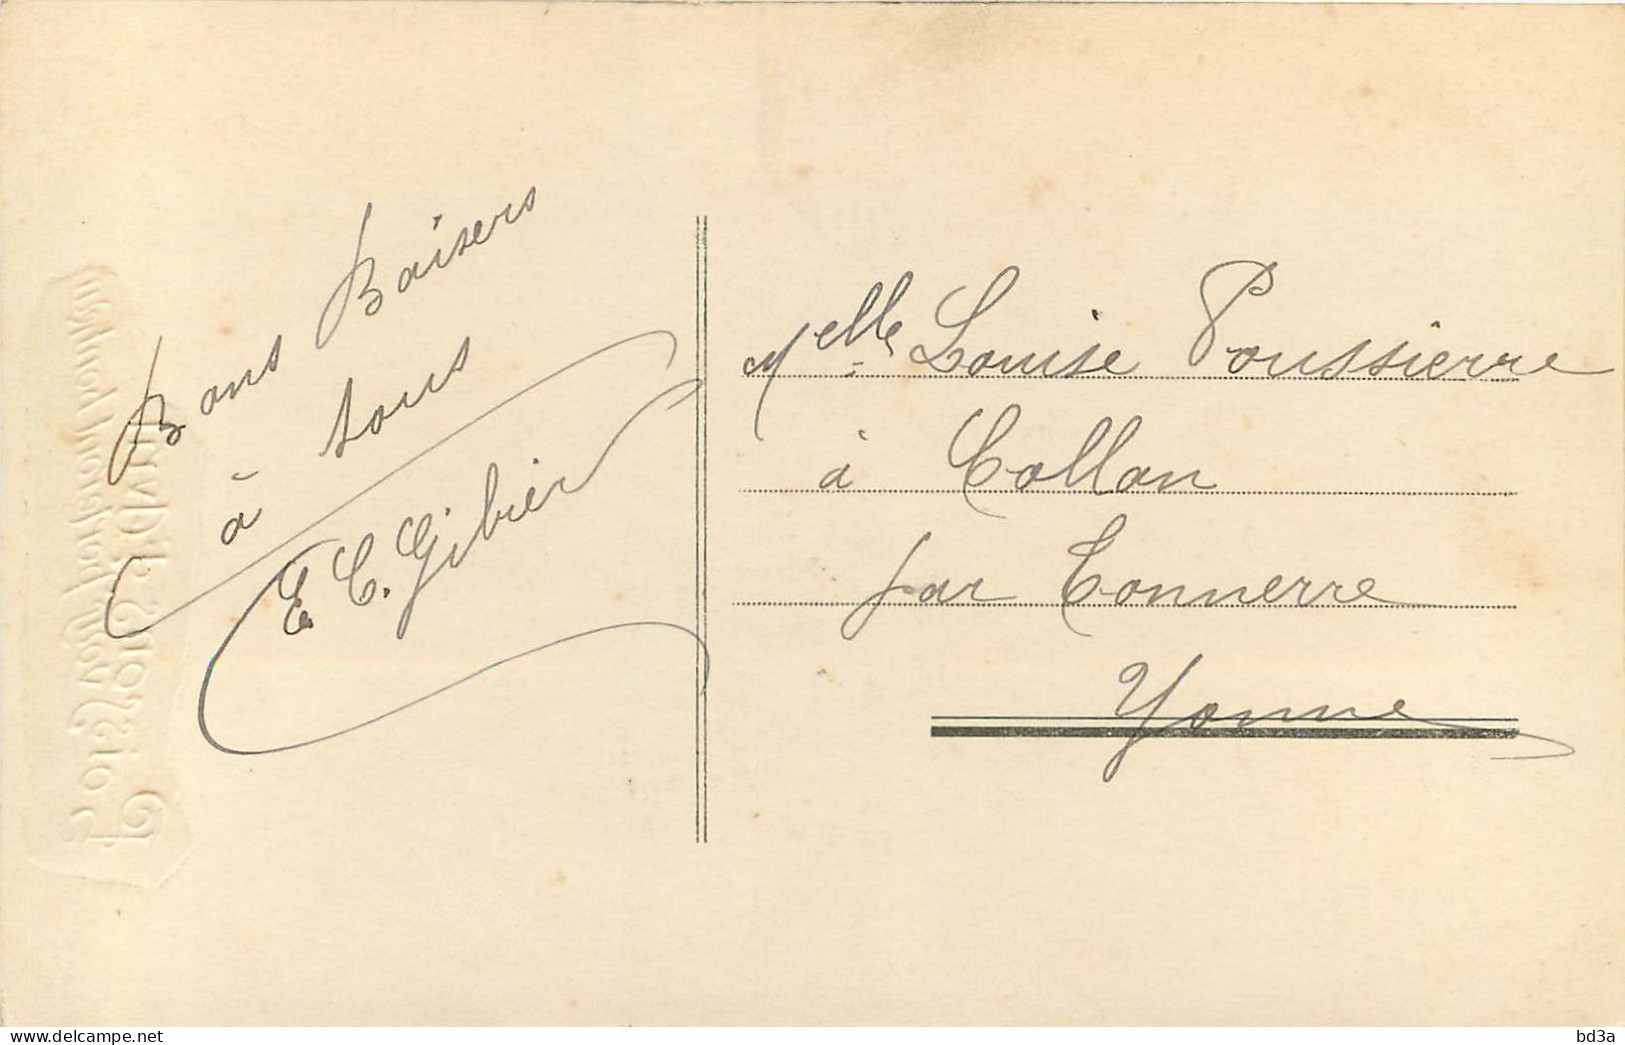 Bons Baisers
à tous
E C. Gibier
Melle Louise Poussierre
à Collan
par Tonnerre
Yonne
www.delcampe.net
bd3a